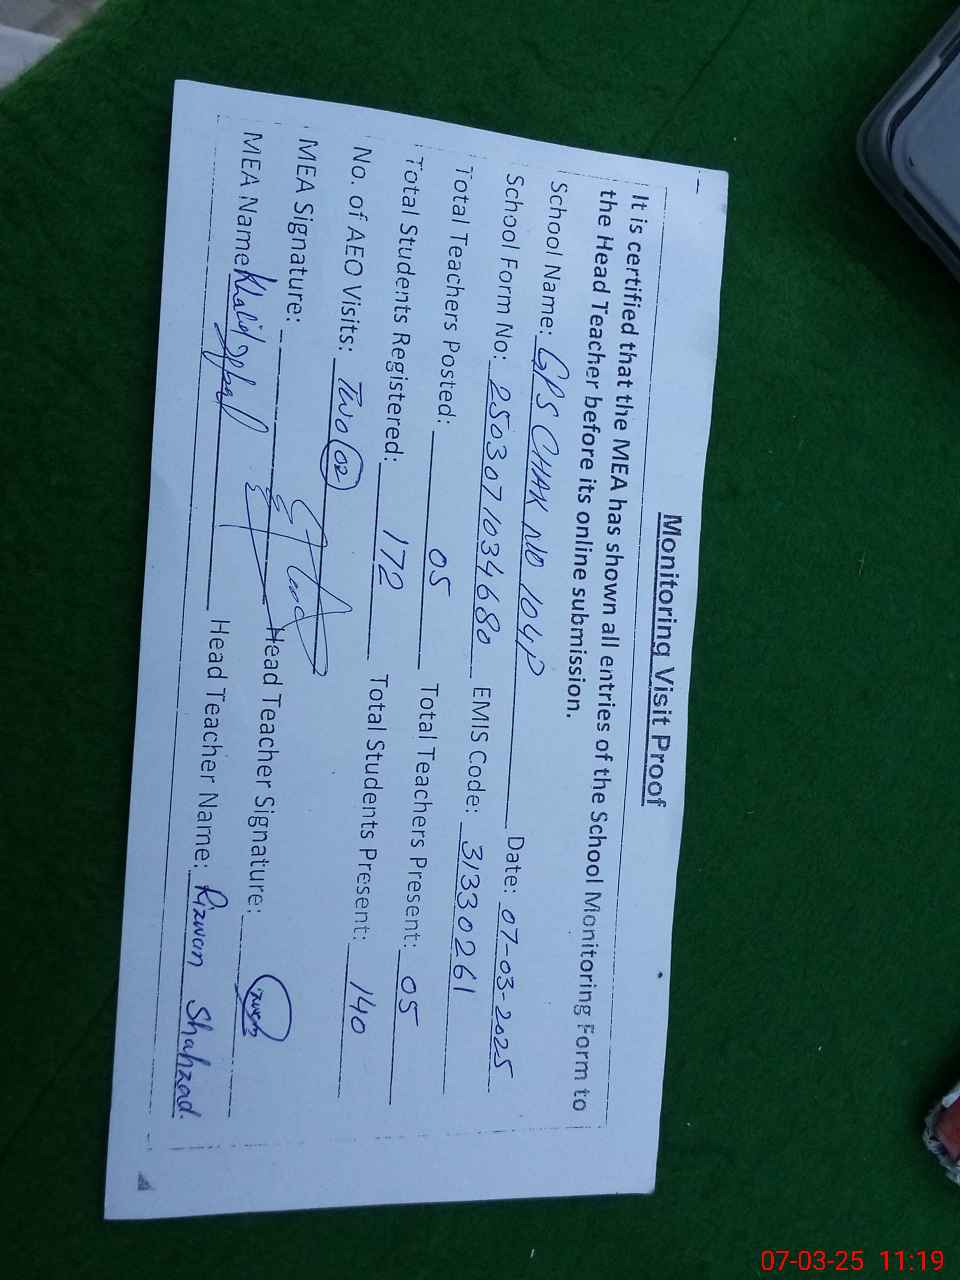 Monitoring Visit Proof
It is certified that the MEA has shown all entries of the School Monitoring Form to
the Head Teacher before its online submission.
School Name: GPS CHAK NO 104P Date: 07-03-2025
School Form No: 2503071034680 EMIS Code: 31330261
Total Teachers Posted: 05 Total Teachers Present: 05
Total Students Registered: 172 Total Students Present: 140
No. of AEO Visits: Two (02)
MEA Signature: Head Teacher Signature:
MEA Name Khalid Iqbal Head Teacher Name: Rizwan Shahzad.
07-03-25 11:19